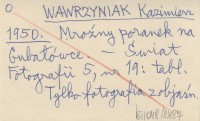 O
WAWRZYNIAK Kazimierz
1950. Mroźny poranek na
Gubałówce. – Świat
Fotografii 5, nr 19: tabl.
Tylko fotografia z objaśn.